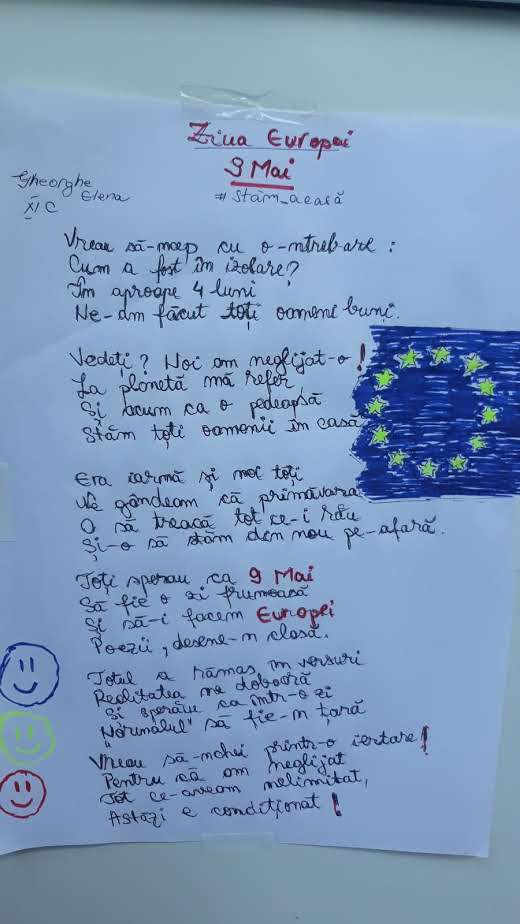 Ziua Europei
9 Mai
Gheorghe
Elena
XI C
#Stăm_acasă
Vreau să-ncep cu o-ntrebare :
Cum a fost în izolare?
În aproape 4 luni
Ne-am făcut toți oameni buni.
Vedeți? Noi am neglijat-o !
La planetă mă refer,
Și acum ca o pedeapsă
Stăm toți oamenii în casă
Era iarnă și noi toți
Ne gândeam că primăvara
O să treacă tot ce-i rău
Și-o să stăm din nou pe-afară.
Toți sperau ca 9 Mai
Să fie o zi frumoasă
Și să-i facem Europei
Poezii, desene-n clasă.
Totul a rămas în versuri
Realitatea ne doboară
Și sperău ca într-o zi
"Normalul" să fie-n țară
Vreau să-nchei printr-o iertare!
Pentru că am neglijat
Tot ce-aveam nelimitat,
Astăzi e condiționat !